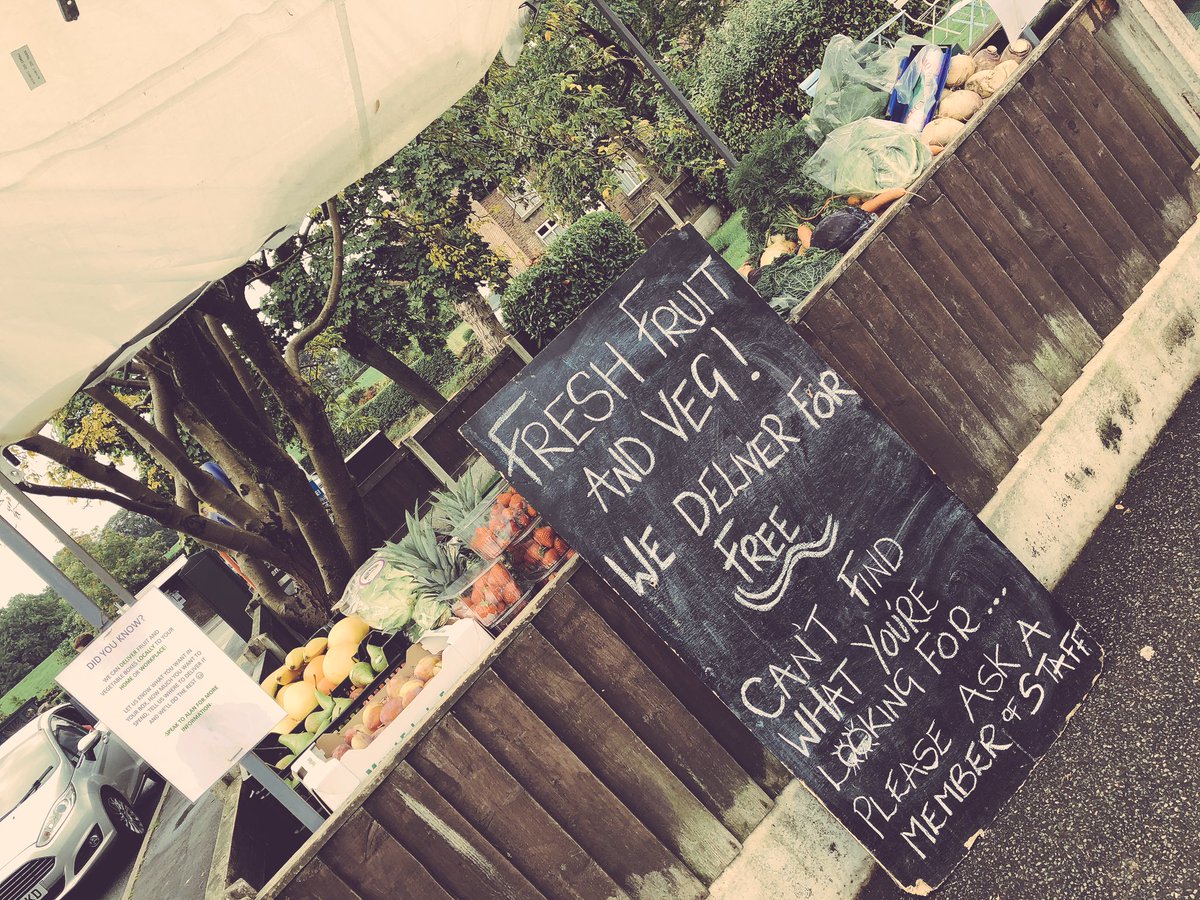 FRESH FRUIT
AND VEG!
WE DELIVER FOR
FREE
CAN'T FIND
WHAT YOU'RE
LOOKING FOR...
PLEASE ASK A
MEMBER OF STAFF
DID YOU KNOW?
WE CAN DELIVER FRUIT AND
VEGETABLE BOXES LOCALLY TO YOUR
HOME OR WORKPLACE!
LET US KNOW WHAT YOU WANT IN
YOUR BOX, HOW MUCH YOU WANT TO
SPEND, TELL US WHERE TO DELIVER IT
AND WE'LL DO THE REST ☺
SPEAK TO ALAN FOR MORE
INFORMATION.